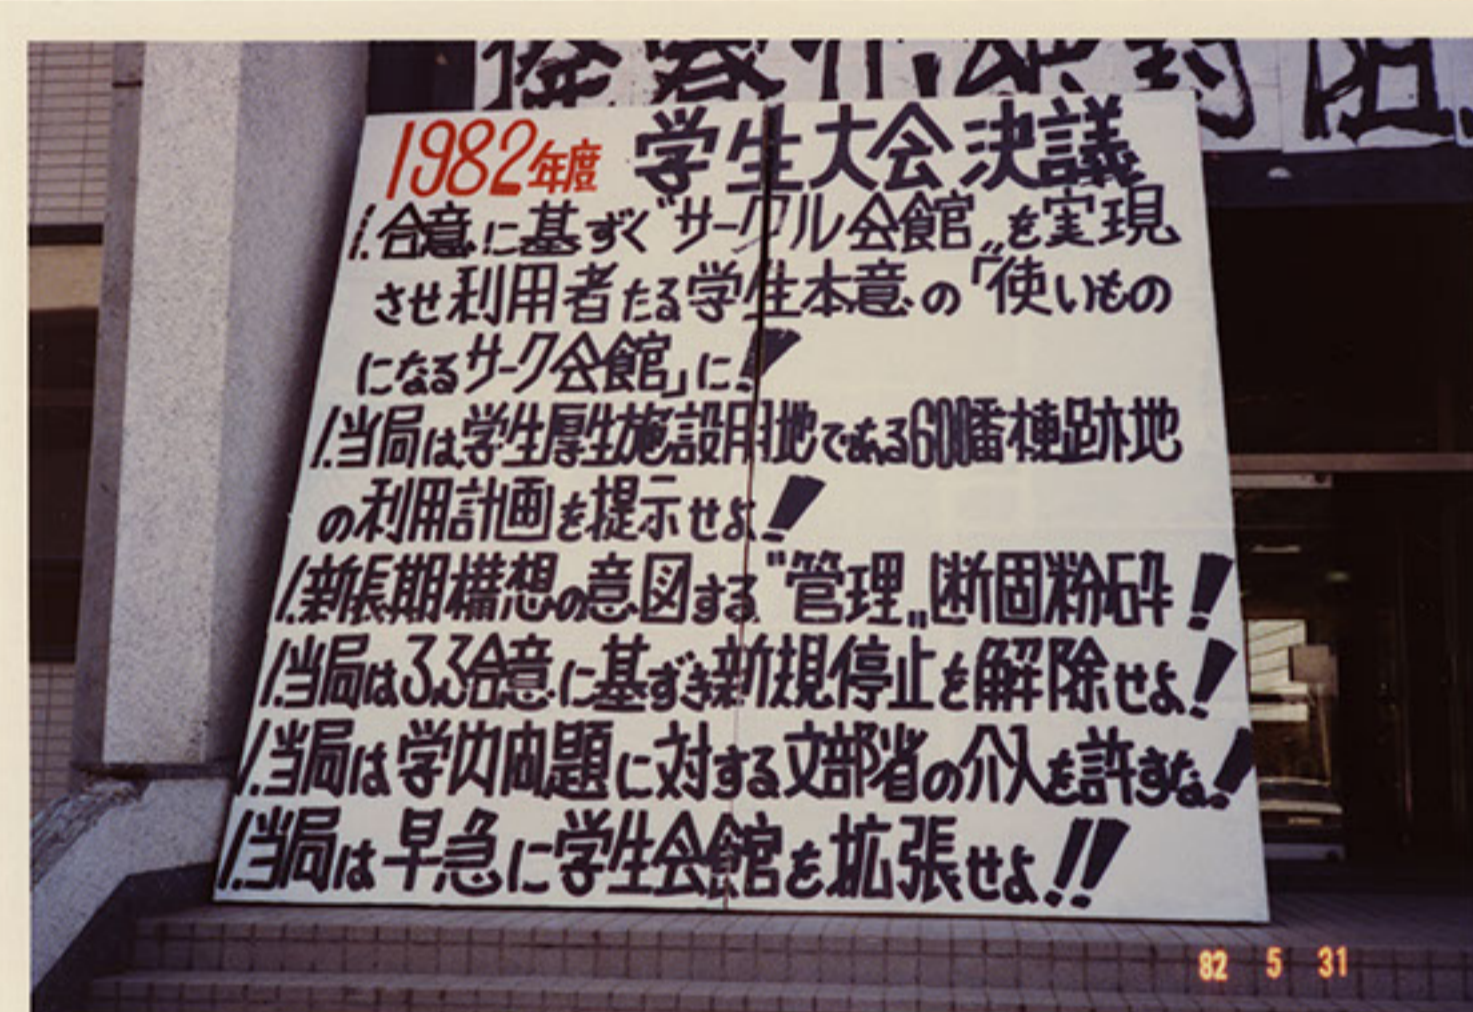 1982年度 学生大会決議
1.合意に基ずく〝サークル会館〟を実現
させ利用者たる学生本意の「使いもの
になるサーク会館」に!
1.当局は学生厚生施設用地である600番棟跡地
の利用計画を提示せよ!
1.新長期構想の意図する〝管理〟断固粉砕!
1.当局は3.3合意に基ずき新規停止を解除せよ!
1.当局は学内問題に対する文部省の介入を許すな!
1.当局は早急に学生会館を拡張せよ!!
82 5 31